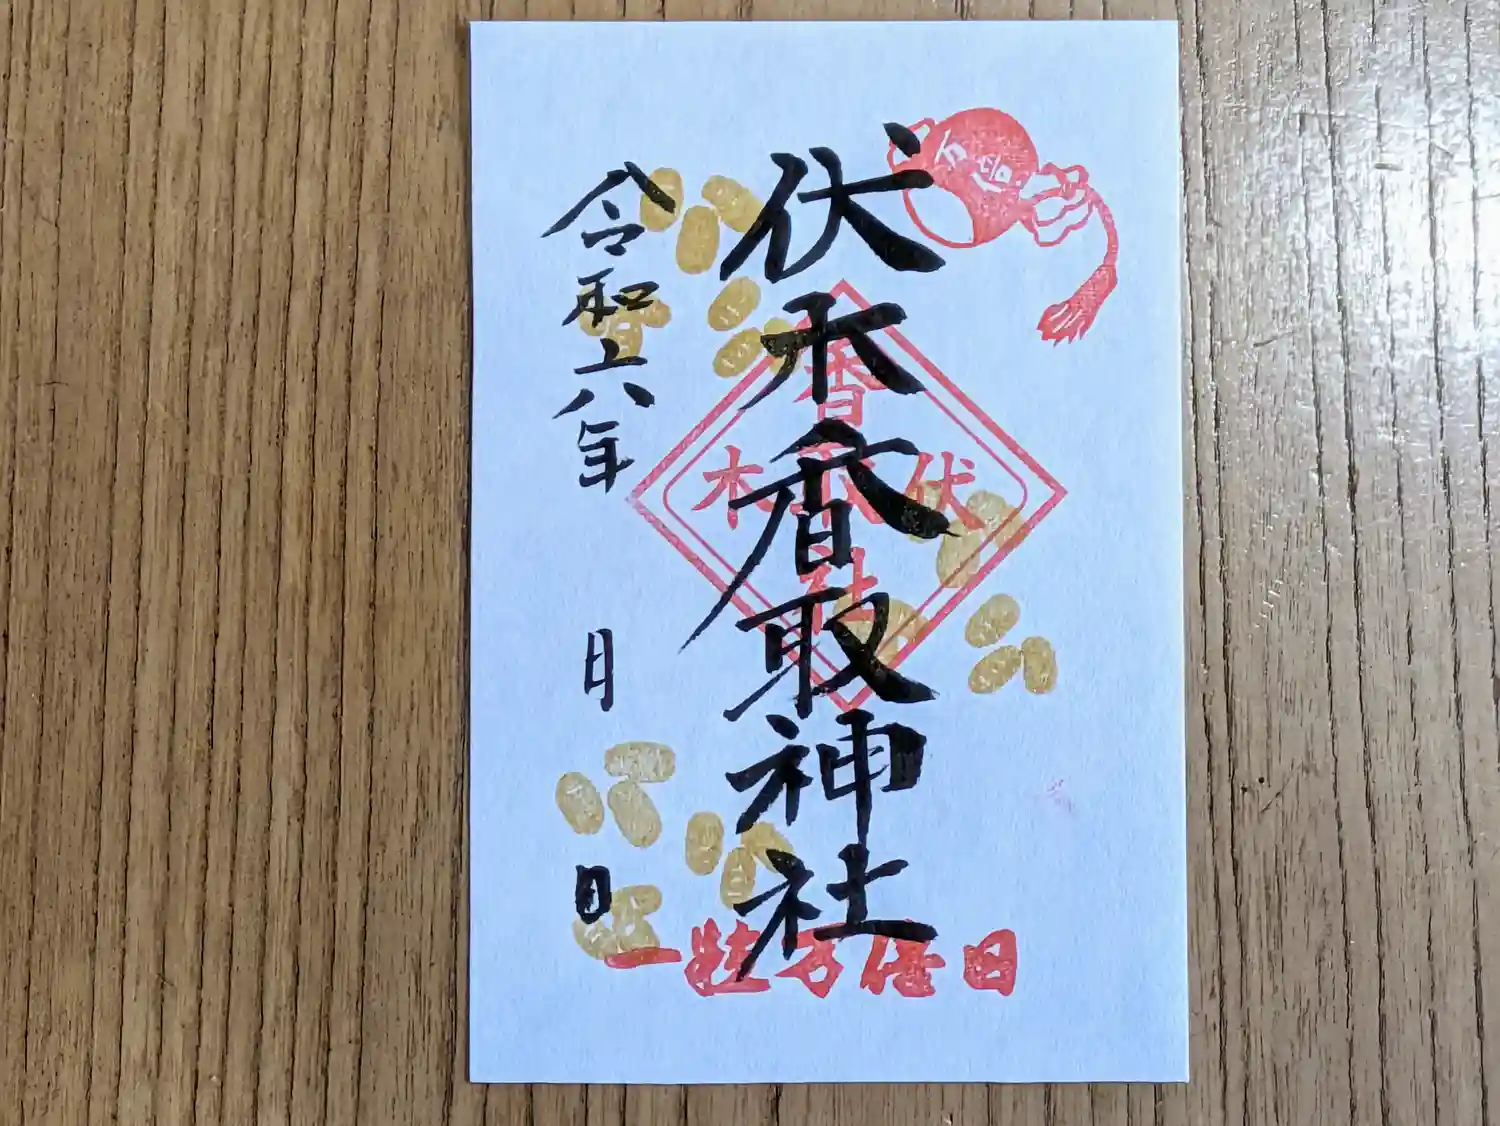 伏木香取神社
令和六年　月　日
香取
伏木
社
一粒万倍日
万倍